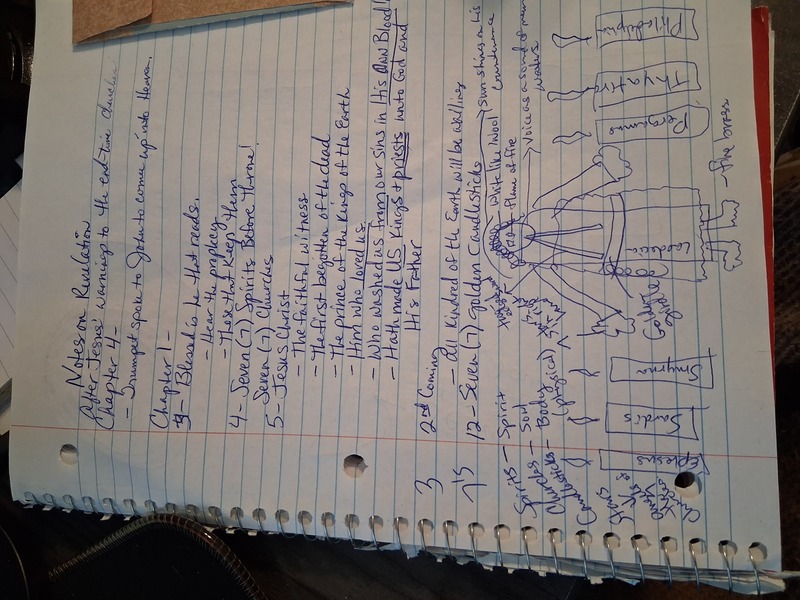 Notes on Revelation
After Jesus' warning to the end-time churches
Chapter 4 -
- Trumpet spoke to John to come up into Heaven.
Chapter 1 -
- Blessed is he that reads.
- Hear the prophecy
- Those that keep them
4 - Seven (7) Spirits Before Throne!
Seven (7) Churches
5 - Jesus Christ
- The faithful witness
- The first begotten of the dead
- The prince of the Kings of the Earth
- Him who loved us.
- Who washed us from our sins in His OWN Blood!
- Hath made US Kings + priests unto God and
His Father
3 2nd Coming
- All Kindred of the Earth will be wailing
12 - Seven (7) Golden Candlesticks
Sun shines on His
countenance
Spirits - Spirit
White like Wool
Flame of fire
Churches - Soul
Voice as a sound of many
waters
Candlesticks - Body
(physical)
Golden
Girdle
Fine brass
Ephesus
Sardis
Smyrna
Pergamus
Thyatira
Philadelphia